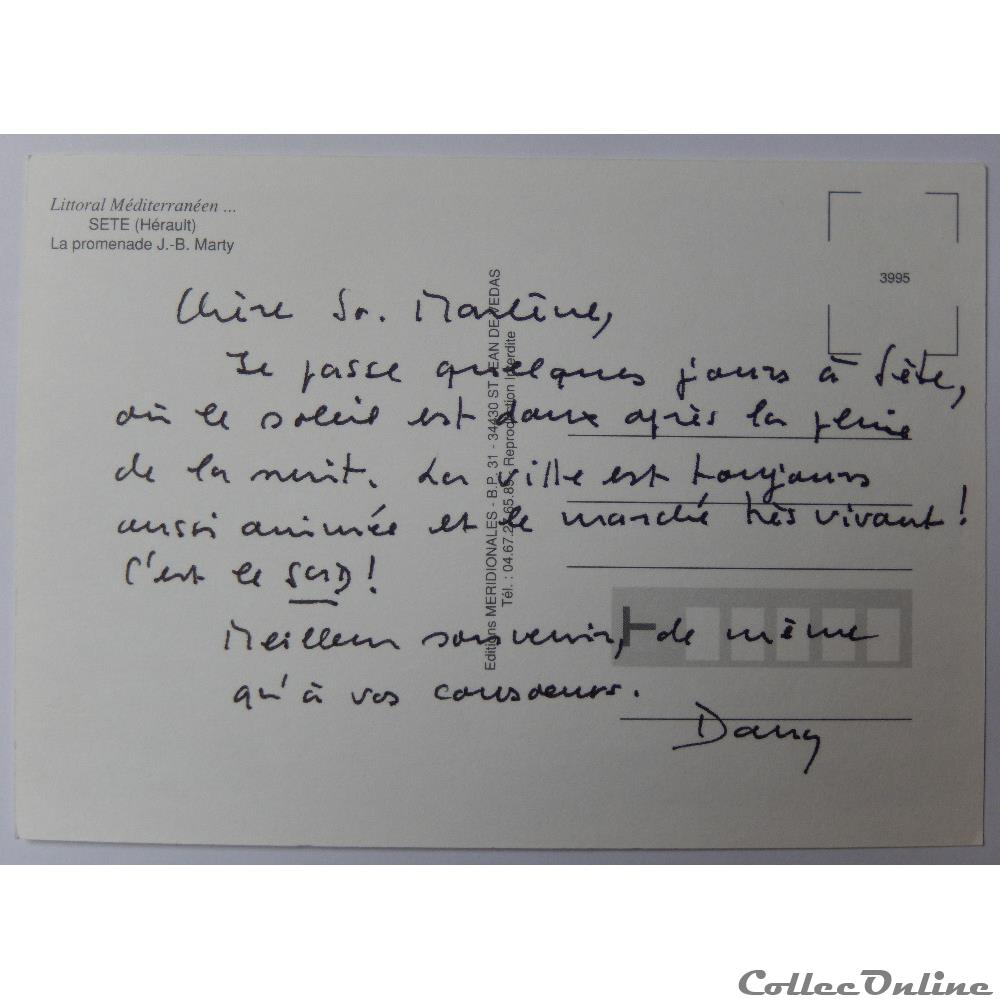 Littoral Méditerranéen ...
SETE (Hérault)
La promenade J.-B. Marty
3995
Chère Sr. Martine,
Je passe quelques jours à Sète,
où le soleil est doux après la pluie
de la nuit. La ville est toujours
aussi animée et le marché très vivant !
C'est le SUD !
Meilleur souvenir, de même
qu'à vos consoeurs.
Dany
Editions MERIDIONALES - B.P. 31 - 34430 ST JEAN DE VEDAS
Tél. : 04.67.27.65.85 - Reproduction Interdite
CollecOnline